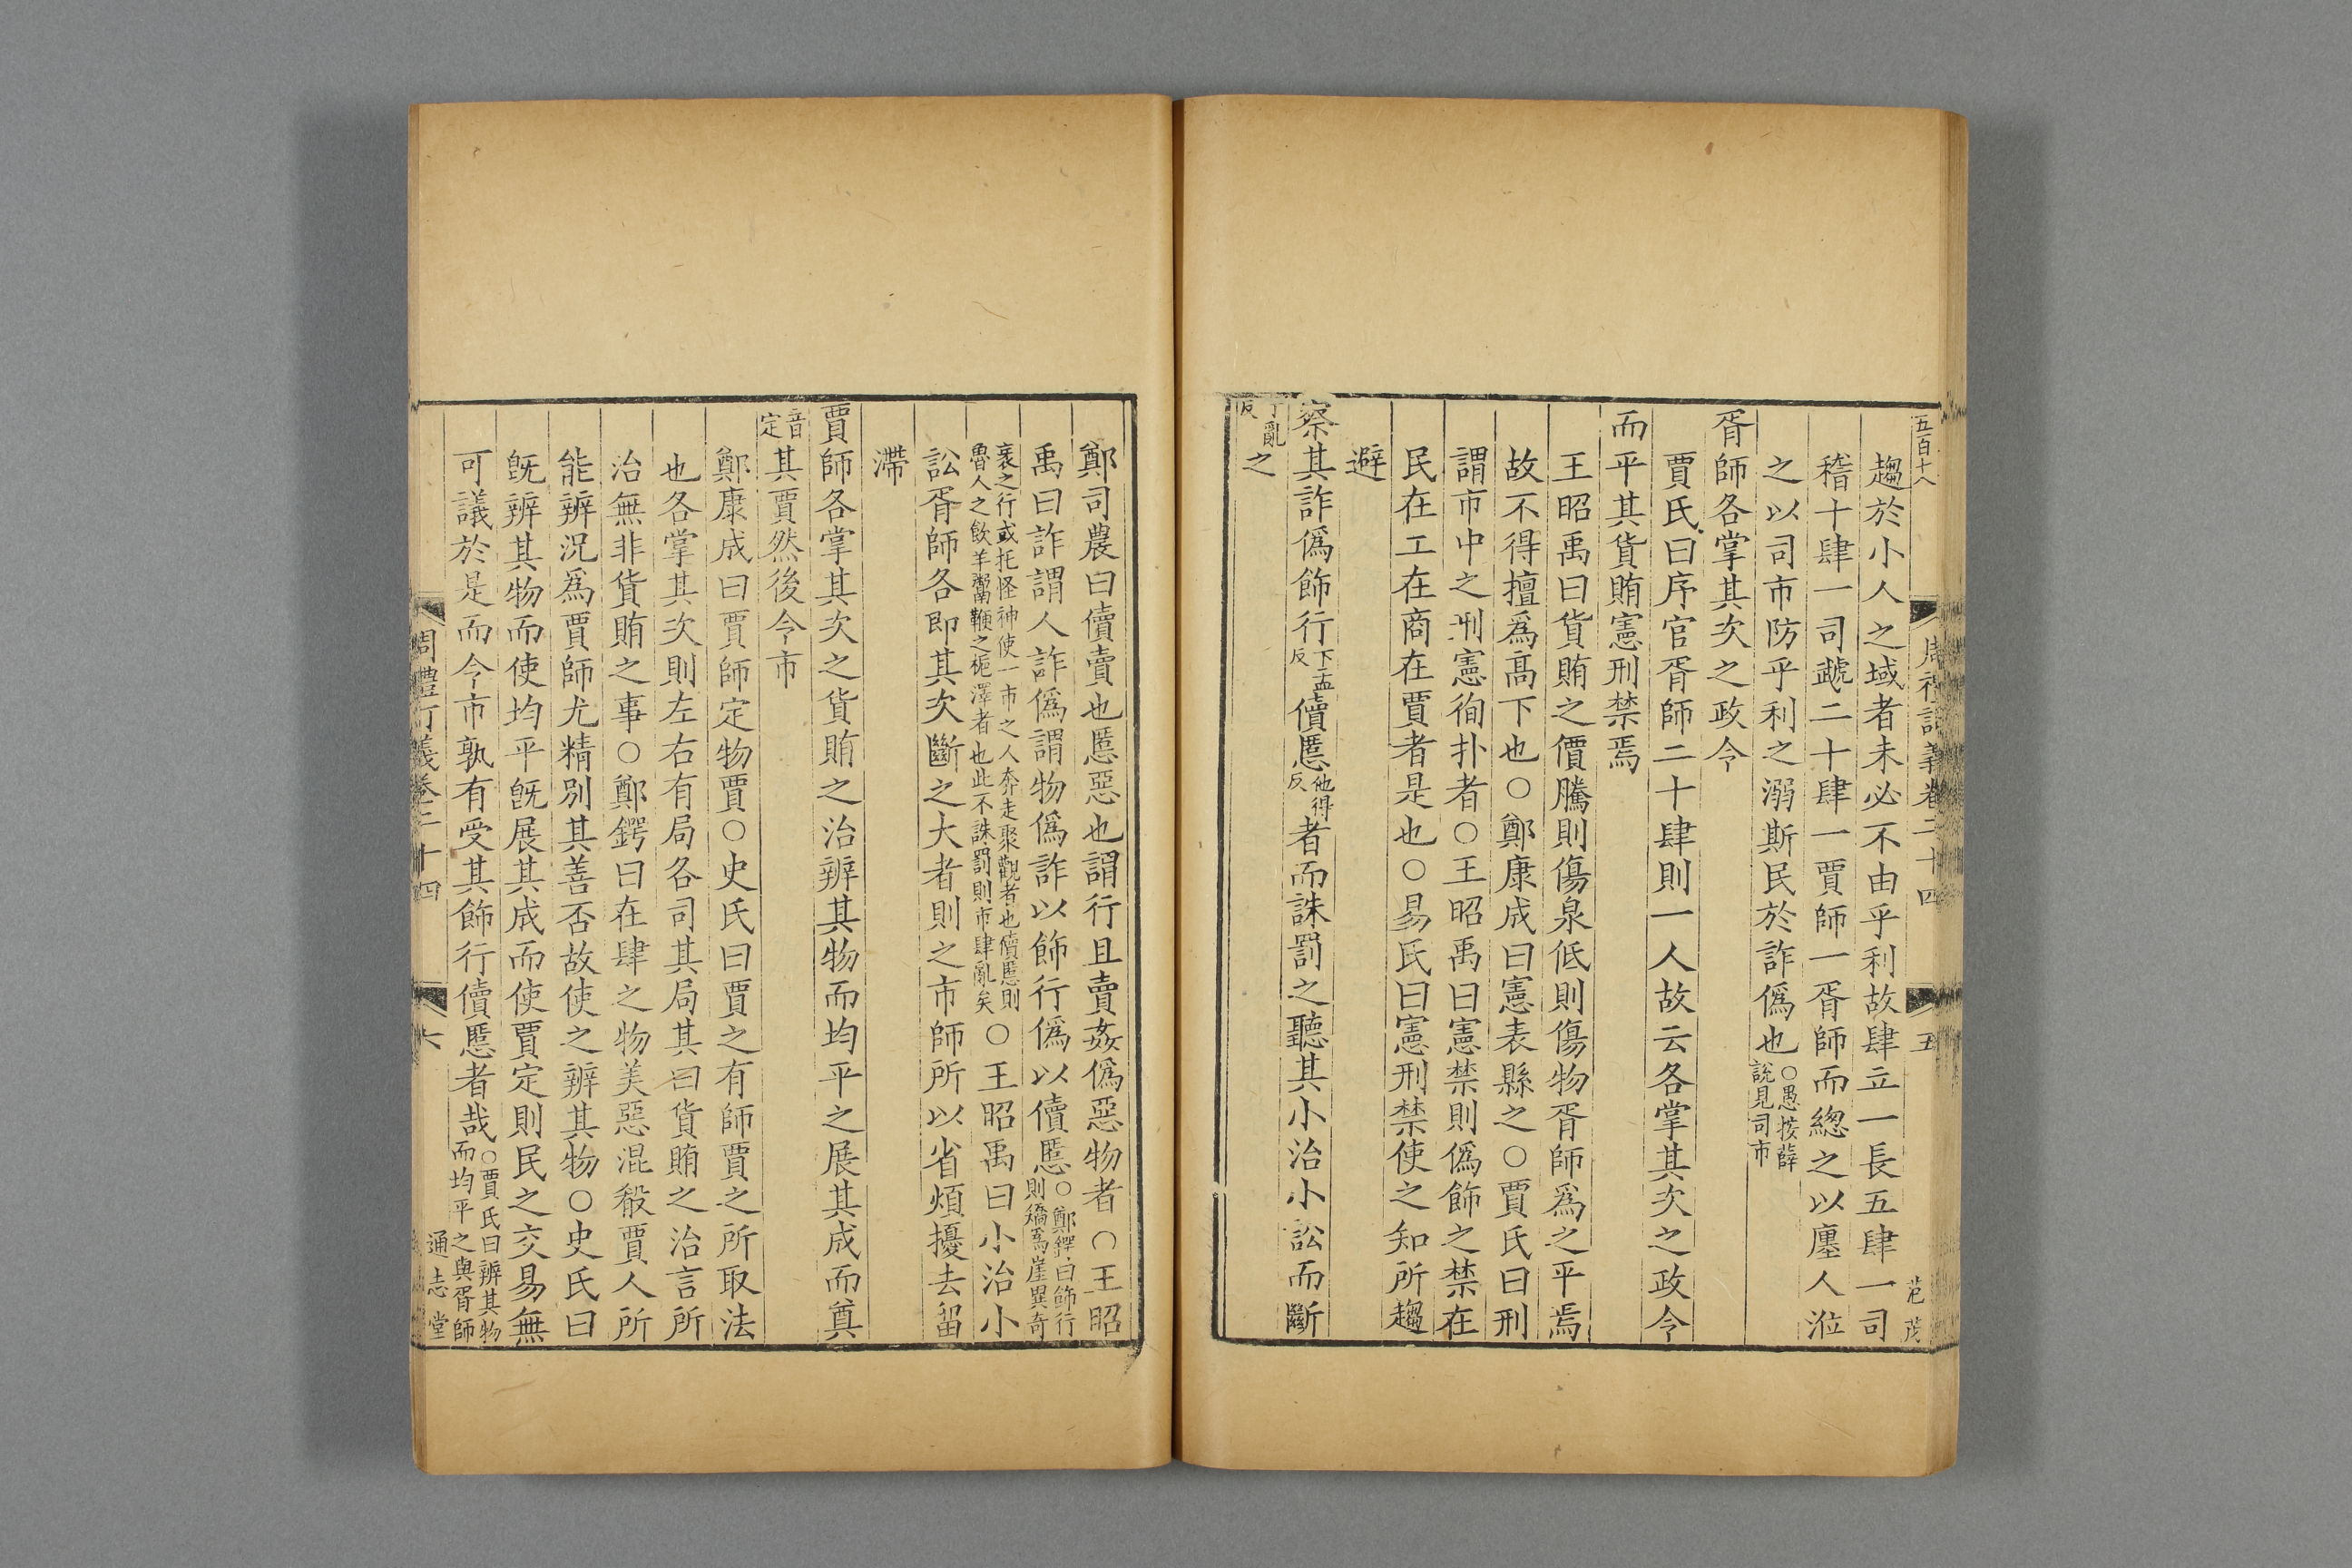 五百十八
周禮訂義卷二十四
五
范茂
趨於小人之域者未必不由乎利故肆立一長五肆一司
稽十肆一司虣二十肆一賈師一胥師而緫之以廛人涖
之以司市防乎利之溺斯民於詐僞也○愚按薛說見司市
胥師各掌其次之政令
賈氏曰序官胥師二十肆則一人故云各掌其次之政令
而平其貨賄憲刑禁焉
王昭禹曰貨賄之價騰則傷泉低則傷物胥師爲之平焉
故不得擅爲髙下也○鄭康成曰憲表縣之○賈氏曰刑
謂市中之刑憲徇扑者○王昭禹曰憲禁則僞飾之禁在
民在工在商在賈者是也○易氏曰憲刑禁使之知所趨
避
察其詐僞飾行下孟反儥慝他得反者而誅罰之聽其小治小訟而斷
丁亂反之
鄭司農曰儥賣也慝惡也謂行且賣姦僞惡物者○王昭
禹曰詐謂人詐僞謂物僞詐以飾行僞以儥慝○鄭鍔曰飾行則矯爲崖異奇
衺之行或托怪神使一市之人奔走聚觀者也儥慝則魯人之飲羊鬻鞭之梔澤者也此不誅罰則市肆亂矣○王昭禹曰小治小
訟胥師各即其次斷之大者則之市師所以省煩擾去留
滯
賈師各掌其次之貨賄之治辨其物而均平之展其成而奠
音定其賈然後令市
鄭康成曰賈師定物賈○史氏曰賈之有師賈之所取法
也各掌其次則左右有局各司其局其曰貨賄之治言所
治無非貨賄之事○鄭鍔曰在肆之物美惡混殽賈人所
能辨况爲賈師尤精別其善否故使之辨其物○史氏曰
旣辨其物而使均平旣展其成而使賈定則民之交易無
可議於是而令市孰有受其飾行儥慝者哉○賈氏曰辨其物而均平之與胥師
周禮訂義卷二十四
六
通志堂